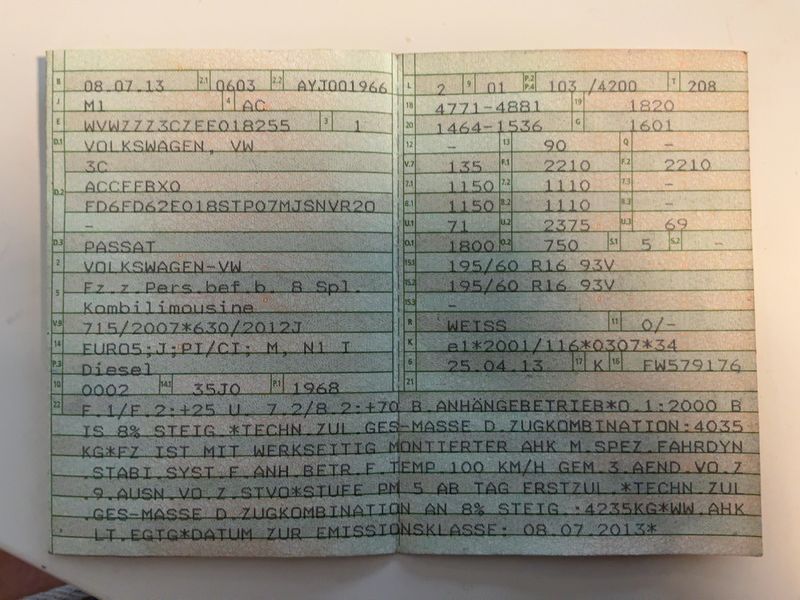 B 08.07.13 2.1 0603 2.2 AYJ001966
J M1 4 AC
E WVWZZZ3CZEE018255 3 1
D.1 VOLKSWAGEN, VW
3C
D.2 ACCFFBX0
FD6FD62E018STP07MJSNVR20
-
D.3 PASSAT
2 VOLKSWAGEN-VW
5 Fz.z.Pers.bef.b. 8 Spl.
Kombilimousine
V.9 715/2007*630/2012J
14 EURO5;J;PI/CI; M, N1 I
P.3 Diesel
10 0002 14.1 35J0 P.1 1968
L 2 9 01 P.2 P.4 103 /4200 T 208
18 4771-4881 19 1820
20 1464-1536 G 1601
12 - 13 90 Q -
V.7 135 F.1 2210 F.2 2210
7.1 1150 7.2 1110 7.3 -
8.1 1150 8.2 1110 8.3 -
U.1 71 U.2 2375 U.3 69
O.1 1800 O.2 750 S.1 5 S.2 -
15.1 195/60 R16 93V
15.2 195/60 R16 93V
15.3 -
R WEISS 11 0/-
K e1*2001/116*0307*34
6 25.04.13 17 K 16 FW579176
21
22 F.1/F.2:+25 U. 7.2/8.2:+70 B.ANHÄNGEBETRIEB*O.1:2000 B
IS 8% STEIG.*TECHN.ZUL.GES-MASSE D.ZUGKOMBINATION:4035
KG*FZ IST MIT WERKSEITIG MONTIERTER AHK M.SPEZ.FAHRDYN
.STABI.SYST.F.ANH.BETR.F.TEMP 100 KM/H GEM.3.AEND.VO.Z
.9.AUSN.VO.Z.STVO*STUFE PM 5 AB TAG ERSTZUL.*TECHN.ZUL
.GES-MASSE D.ZUGKOMBINATION AN 8% STEIG.:4235KG*WW.AHK
LT.EGTG*DATUM ZUR EMISSIONSKLASSE: 08.07.2013*